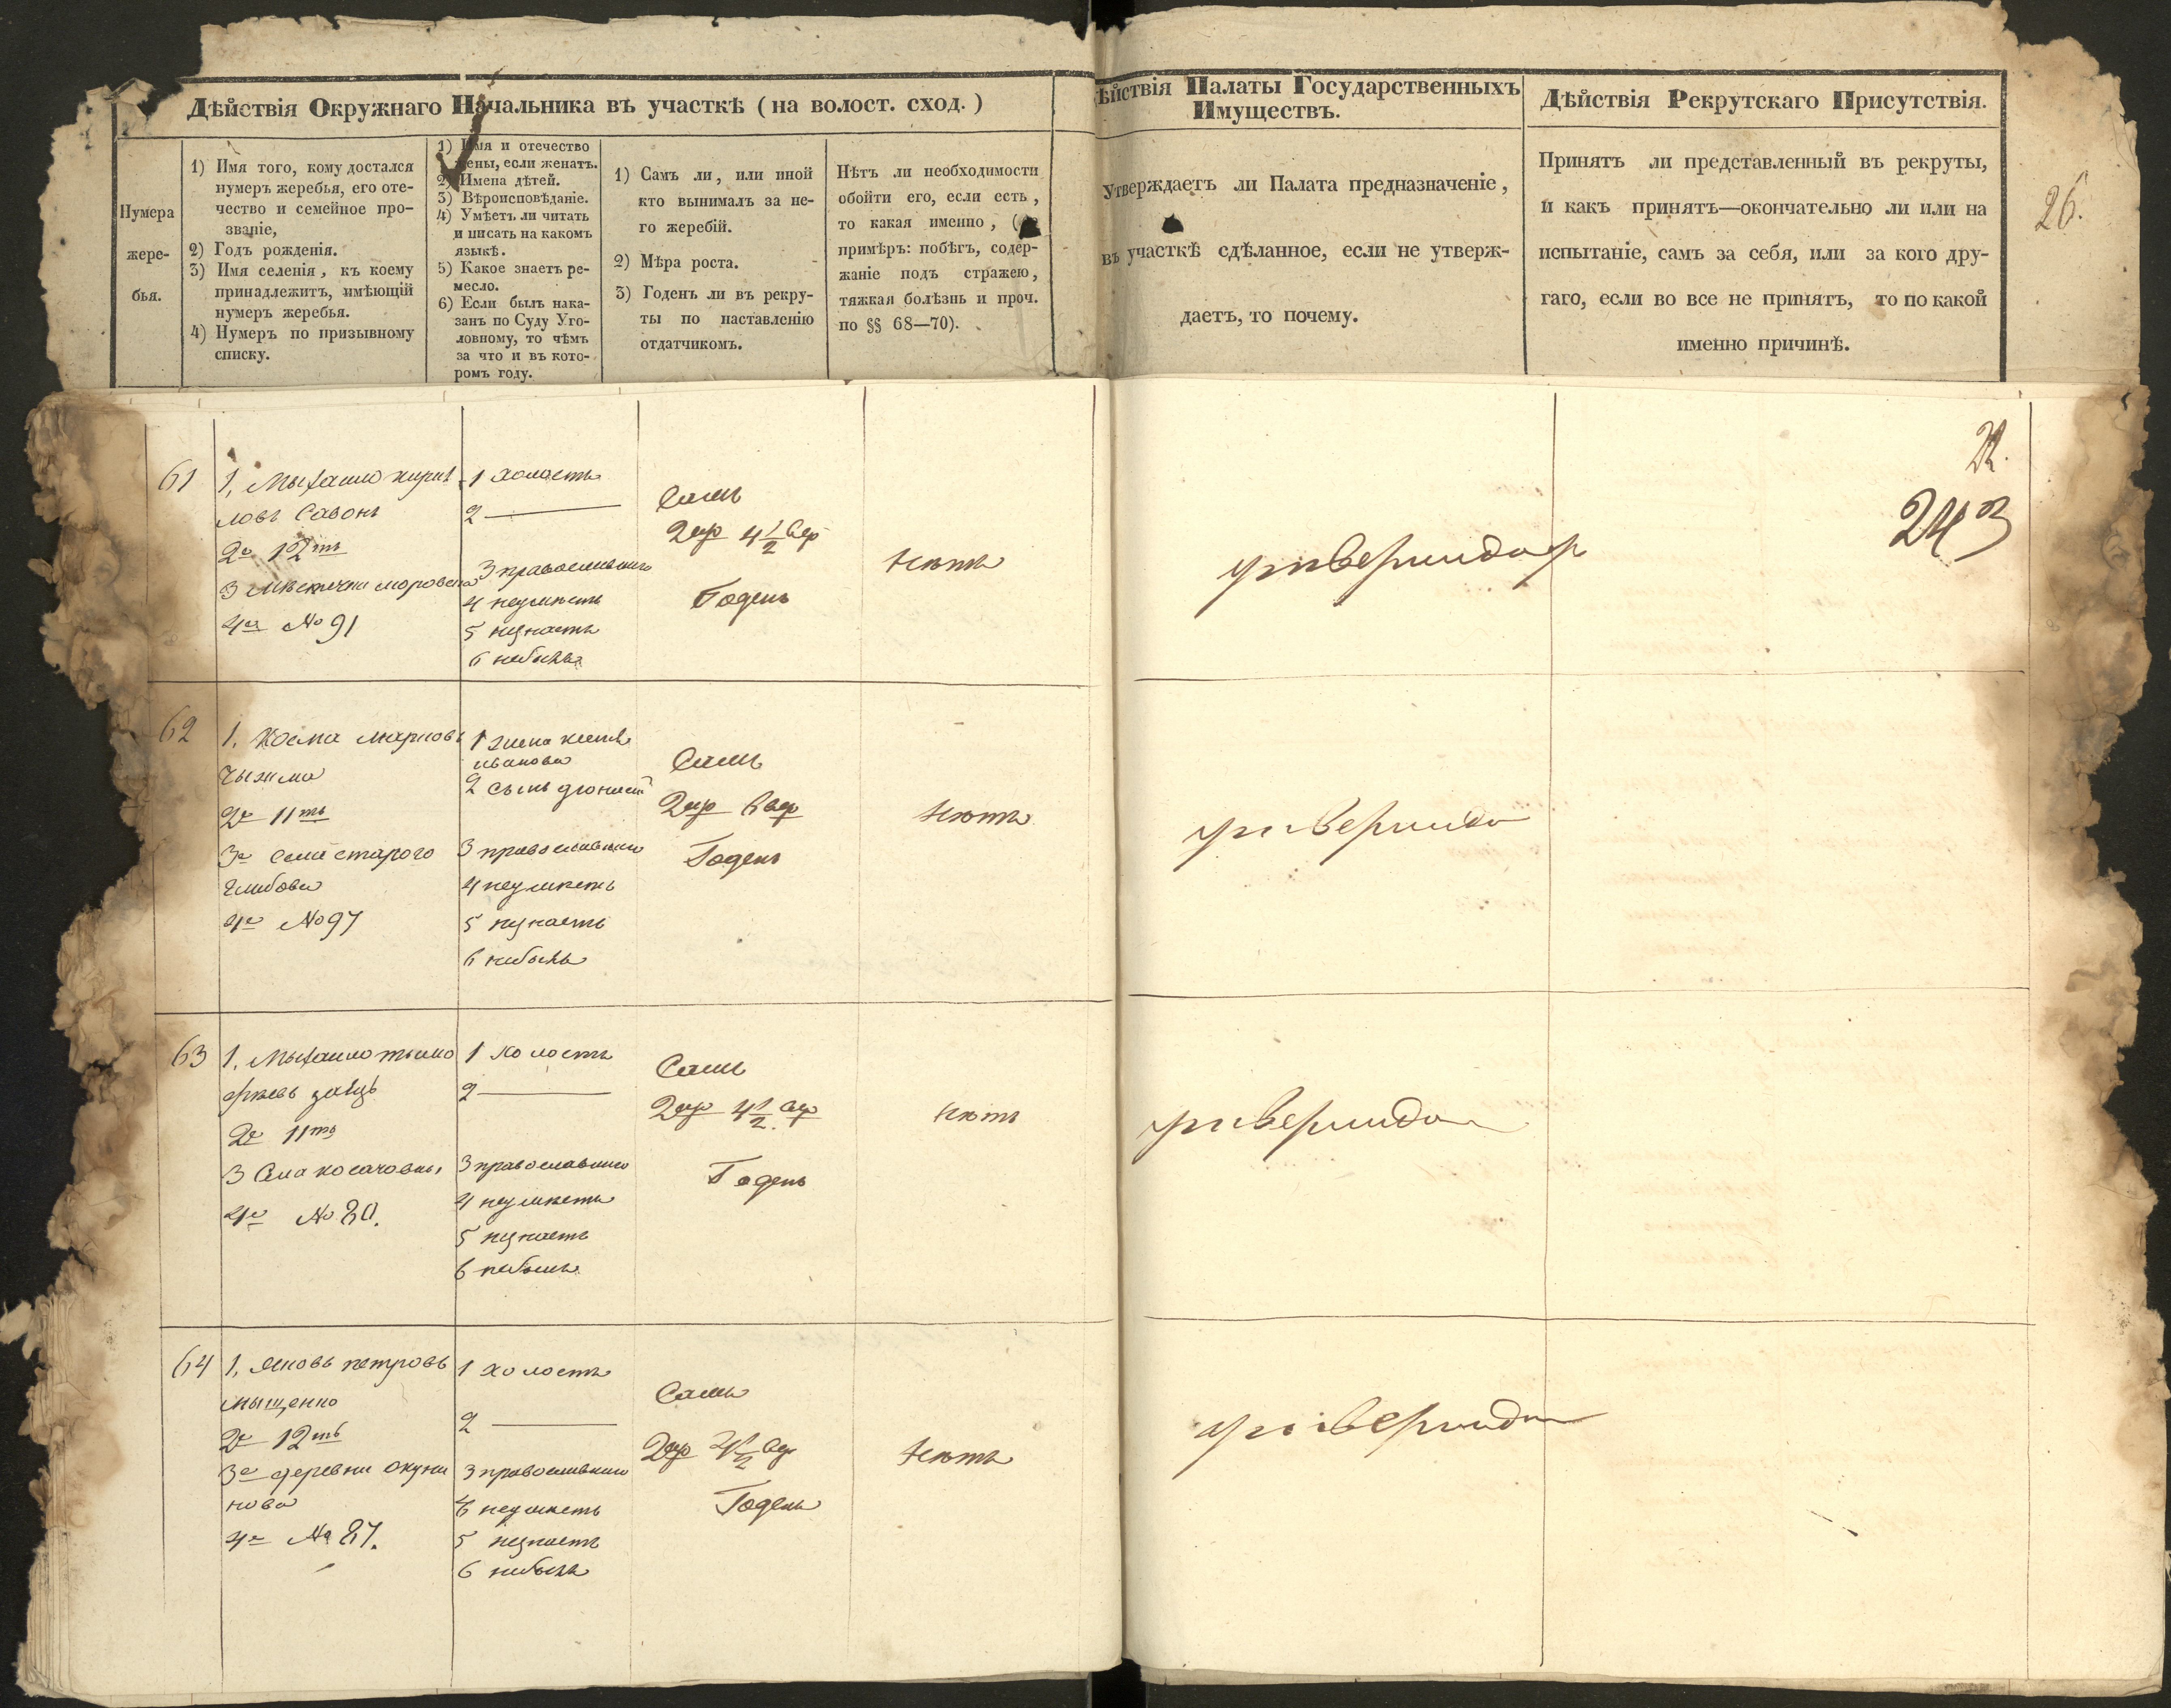 Дѣйствія Окружнаго Начальника въ участкѣ (на волост. сход.)
Нумера
жере-
бья.
1) Имя того, кому достался
нумеръ жеребья, его оте-
чество и семейное про-
званіе,
2) Годъ рожденія.
3) Имя селенія, къ коему
принадлежитъ, имѣющій
нумеръ жеребья.
4) Нумеръ по призывному
списку.
1) Имя и отечество
жены, если женатъ.
2) Имена дѣтей.
3) Вѣроисповѣданіе.
4) Умѣетъ ли читать
и писать на какомъ
языкѣ.
5) Какое знаетъ ре-
месло.
6) Если былъ нака-
занъ по Суду Уго-
ловному, то чѣмъ
за что и въ кото-
ромъ году.
1) Самъ ли, или иной
кто вынималъ за не-
го жеребій.
2) Мѣра роста.
3) Годенъ ли въ рекру-
ты по наставленію
отдатчикомъ.
Нѣтъ ли необходимости
обойти его, если есть,
то какая именно, (на
примѣръ: побѣгъ, содер-
жаніе подъ стражею,
тяжкая болѣзнь и проч.
по §§ 68—70).
ѣйствія Палаты Государственныхъ
Имуществъ.
Утверждаетъ ли Палата предназначеніе,
въ участкѣ сдѣланное, если не утверж-
даетъ, то почему.
Дѣйствія Рекрутскаго Присутствія.
Принятъ ли представленный въ рекруты,
и какъ принятъ—окончательно ли или на
испытаніе, самъ за себя, или за кого дру-
гаго, если во все не принятъ, то по какой
именно причинѣ.
26.
243
61
1, Мыхайло кирил
ловъ Савонъ
2е 12ть
3 мѣстечки моровска
4е № 91
1 холостъ
2
3 православнаго
4 неумѣетъ
5 незнаетъ
6 небылъ
Самъ
2 ар 4 1/2 вер
Годенъ
Нѣтъ
62
1. Косма марковъ
Чыжма
2е 11ть
3е Села старого
глибова
4е № 97
1 жена
иванова
2 Сынъ
3 православнаго
4 неумѣетъ
5 незнаетъ
6 небылъ
Самъ
2 ар 6 вер
Годенъ
Нѣтъ
63
1, Мыхайло тымо
фѣевъ заѣцъ
2е 11ть
3 Села косачовки
4е № 80.
1 Холостъ
2
3 православнаго
4 неумѣетъ
5 незнаетъ
6 небылъ
Самъ
2 ар 4 1/2 вер
Годенъ
Нѣтъ
64
1, Яковъ петровъ
мыщенко
2е 12ть
3е деревни окуни
нова
4е № 87.
1 холостъ
2
3 православнаго
4 неумѣетъ
5 незнаетъ
6 небылъ
Самъ
2 ар 4 1/2 вер
Годенъ
Нѣтъ